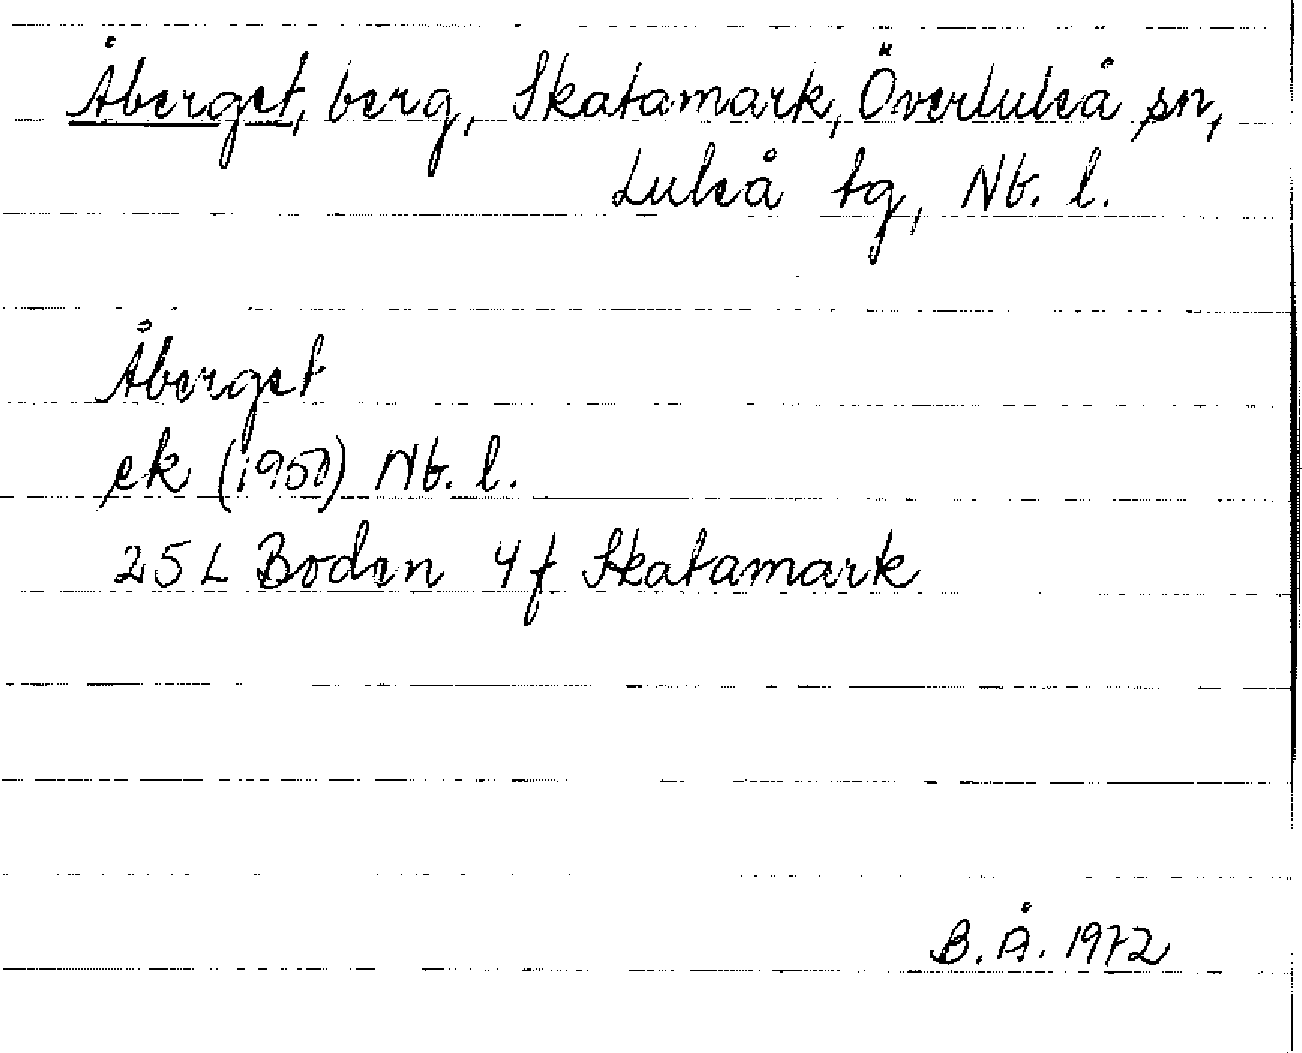 Åberget, berg, Skatamark, Överluleå sn,
Luleå tg, Nb. l.
Åberget
ek (1950) Nb. l.
25 L Boden 4 f Skatamark
B. Å. 1972